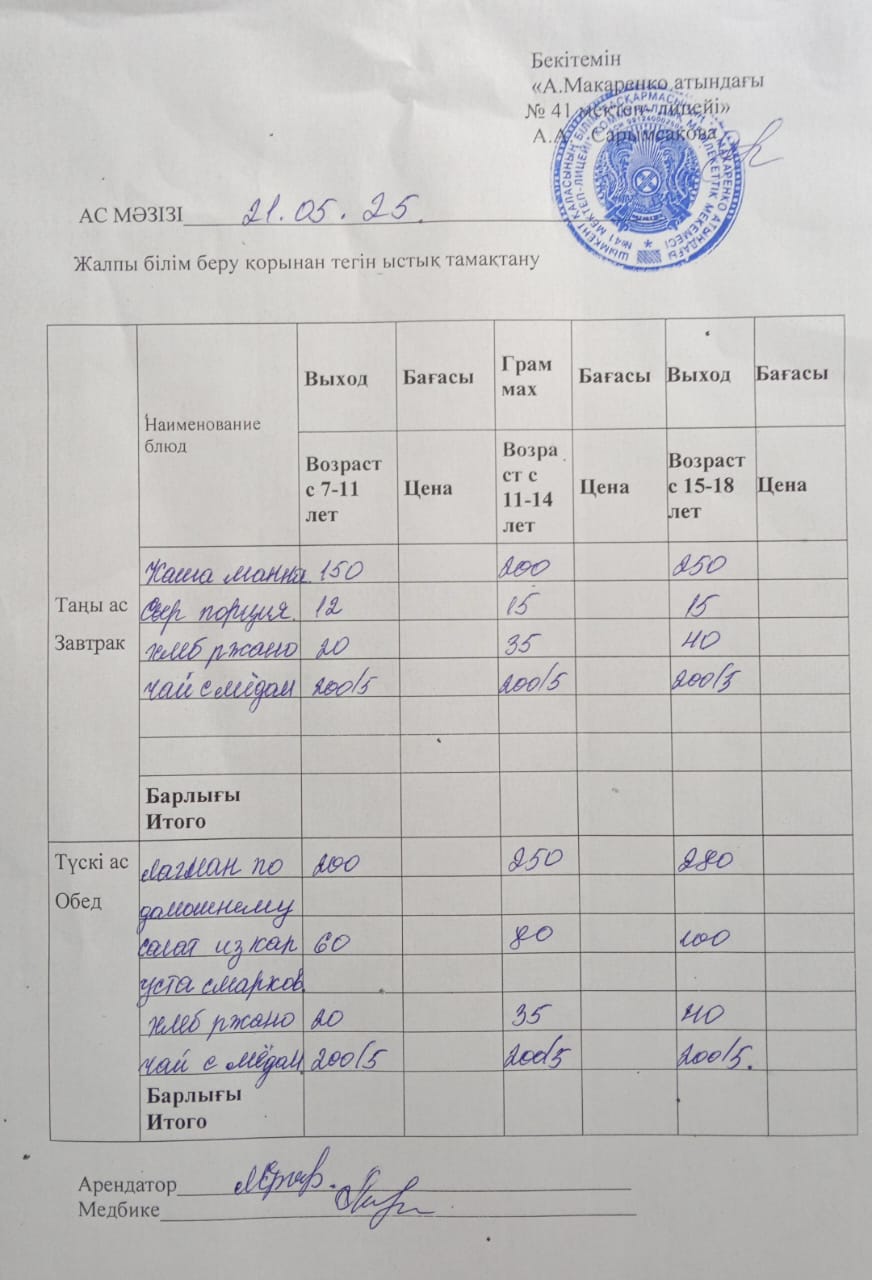 Бекітемін
«А.Макаренко атындағы
№ 41 мектеп- лицейі»
А.А. Сарымсакова
АС МӘЗІЗІ 21.05.25.
Жалпы білім беру қорынан тегін ыстық тамақтану
Наименование блюд Выход Бағасы Грам мах Бағасы Выход Бағасы
Возраст с 7-11 лет Цена Возра ст с 11-14 лет Цена Возраст с 15-18 лет Цена
Таңы ас
Завтрак
Каша манна. 150 200 250
Сыр порция. 12 15 15
хлеб ржано 20 35 40
чай с мёдом 200/5 200/5 200/5
Барлығы
Итого
Түскі ас
Обед
Лагман по 200 250 280
домошнему
салат из кап 60 80 100
уста смарков.
хлеб ржано 20 35 40
чай с мёдом. 200/5 200/5 200/5.
Барлығы
Итого
Арендатор
Медбике